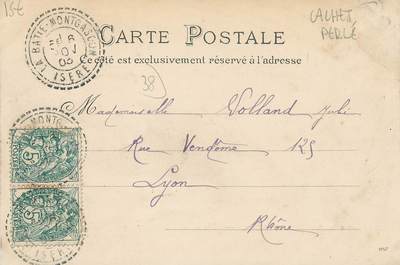 15€
CACHET
PERLÉ
LA BATIE-MONTGASCON
6
NOV
05
ISERE
CARTE POSTALE
Ce côté est exclusivement réservé à l'adresse
38
Mademoiselle Volland Julie
Rue Vendôme 125
Lyon
Rhône
5
5
ISERE